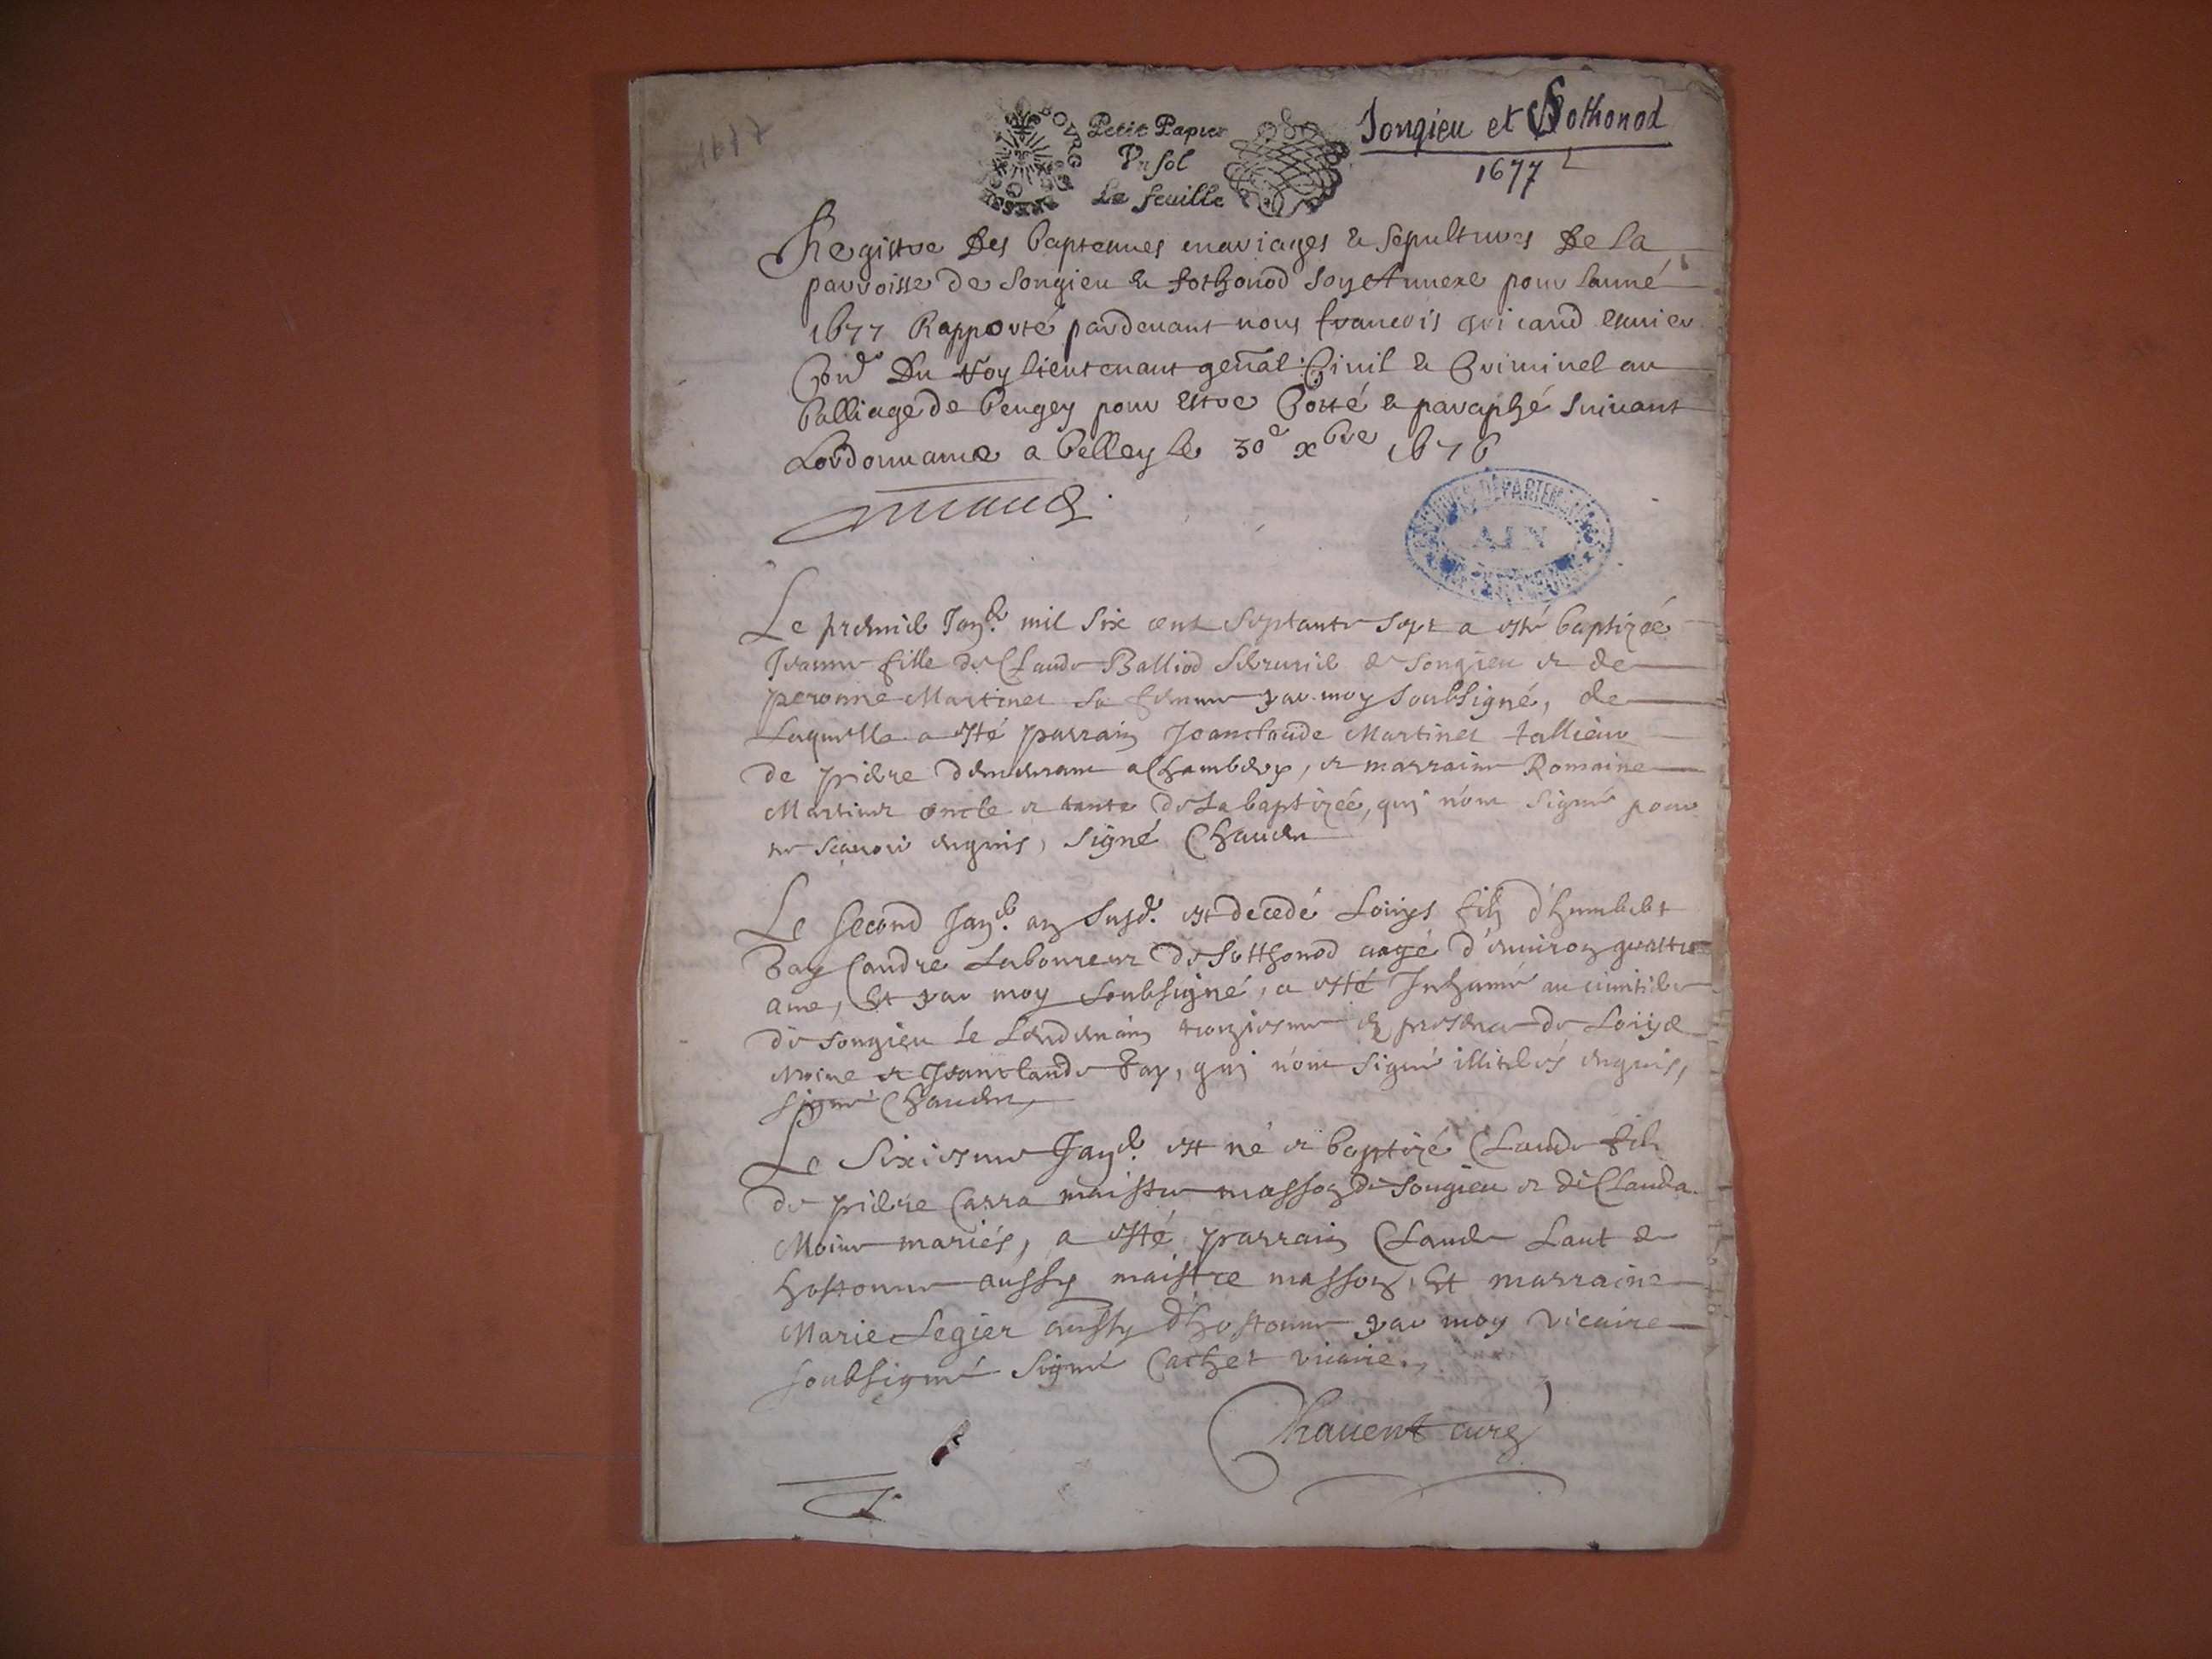 1677
BOURG BRESSE
Petit Papier
Vn sol
La feuille
Songieu et Sothonod
1677
Registre Des baptesmes mariages & sepultures De la
parroisse de Songieu & Sothonod son Annexe pour lanné
1677 Rapporté pardeuant nous francois
Du Roy lieutenant gnal Ciuil & Criminel au
balliage de beugey pour estre Cotté & paraphé suiuant
Lordonnance a belley le 30e xbre 1676
ARCHIVES DÉPARTEMENTALES
AIN
Le premier Janr. mil six cent septante sept a esté baptizée
Jeanne fille de Claude Balliod de Songieu et de
peronne Martinet sa femme par moy soubsigné, de
Laquelle a esté parrain Jeanclaude Martinet tallieur
de pierre demeurant a Chambery, et marraine Romaine
Martinet oncle et tante de La baptizée, qui n'ont signé pour
ne scauoir enquis, signé Chauent
Le second Janr. an susd. est decedé Louys fils d'humbert
Fay Candre Laboureur de Sotthonod aagé d'enuiron quattre
ans, Et par moy soubsigné, a esté Inhumé au cimitiere
de Songieu le Lendemain troiziesme en presence de Louys
Moine et Jeanclaude Fay, qui n'ont signé illiterés enquis,
signé Chauent
Le Sixiesme Janr. est né et baptizé Claude fils
de pierre Carra maistre masson de Songieu et de Clauda
Moine mariés, a esté parrain Claude Laut de
hostonne aussy maistre masson, Et marraine
Marie Legier aussy d'hostonne par moy vicaire
soubsigné signé Cachet vicaire.
Chauent curé